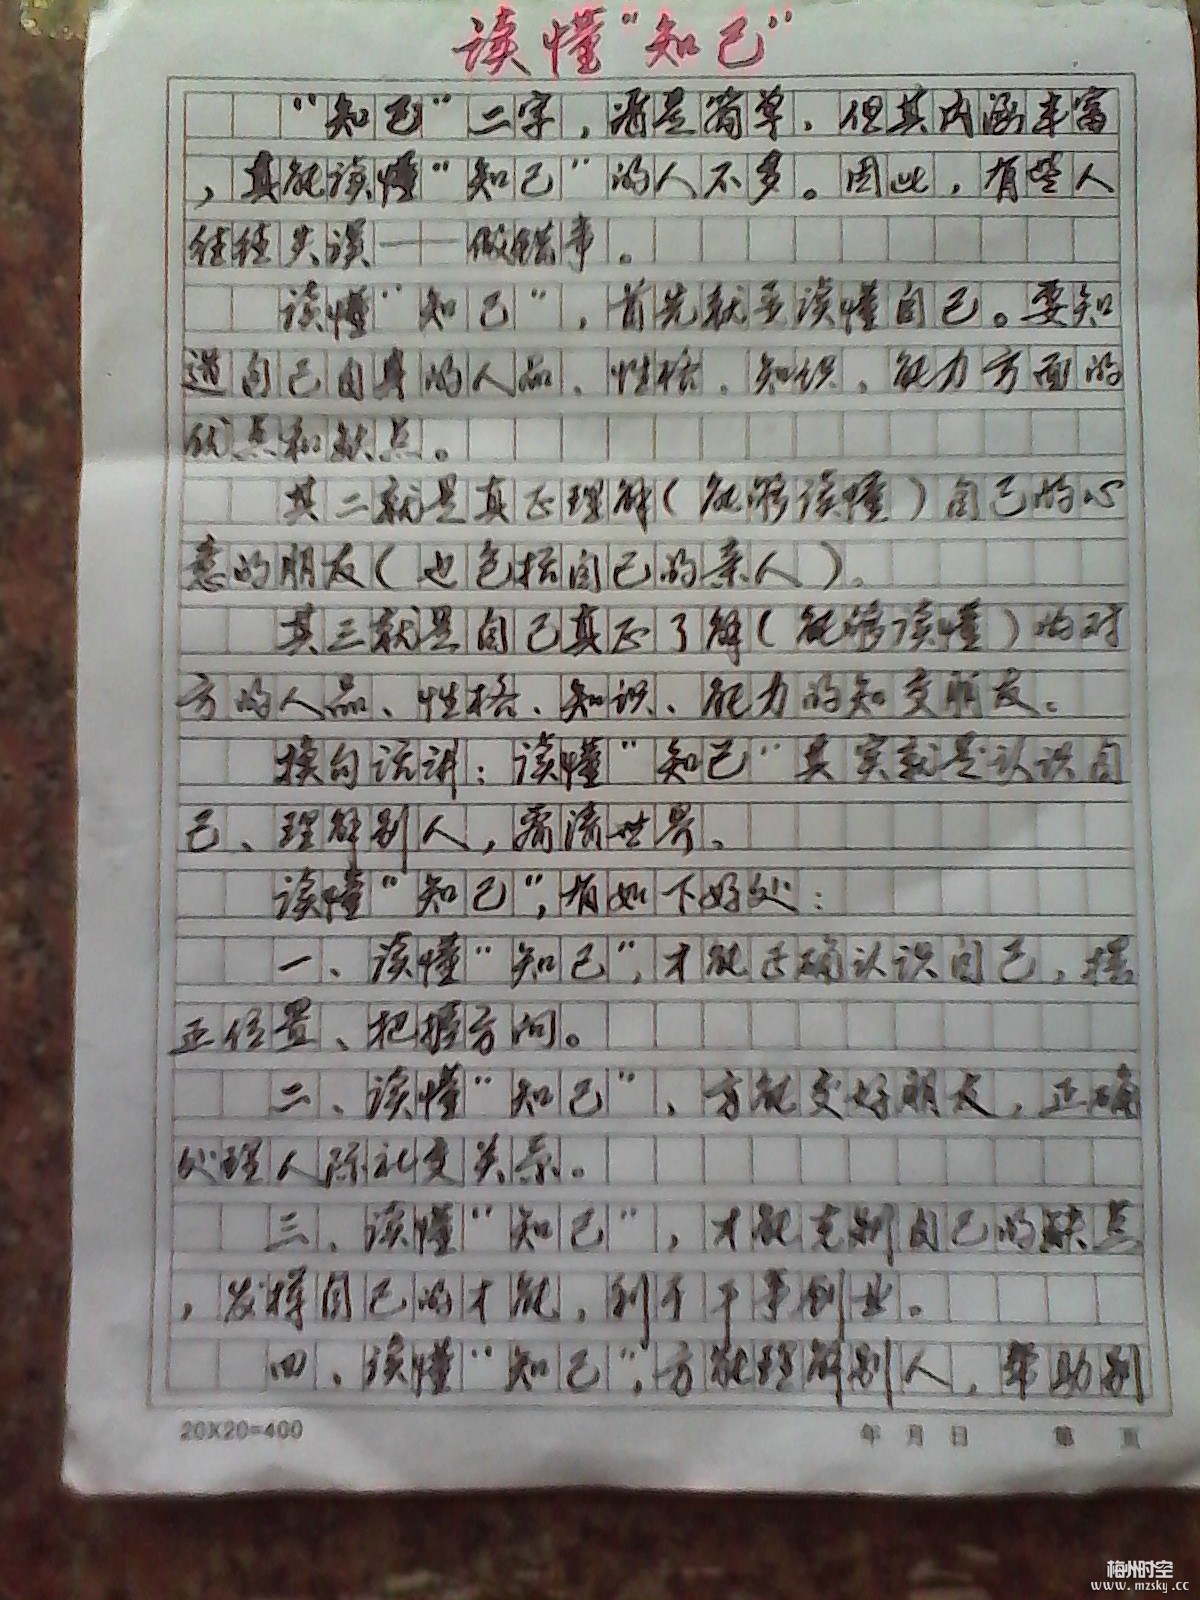 读懂“知己”
“知己”二字，看是简单，但其内涵丰富
，真能读懂“知己”的人不多。因此，有些人
往往失误——做错事。
读懂“知己”，首先就要读懂自己。要知
道自己自身的人品、性格、知识、能力方面的
优点和缺点。
其二就是真正理解（能够读懂）自己的心
意的朋友（也包括自己的亲人）。
其三就是自己真正了解（能够读懂）的对
方的人品、性格、知识、能力的知交朋友。
换句话讲：读懂“知己”其实就是认识自
己、理解别人，看清世界。
读懂“知己”，有如下好处：
一、读懂“知己”，才能正确认识自己，摆
正位置、把握方向。
二、读懂“知己”，方能交好朋友，正确
处理人际社交关系。
三、读懂“知己”，才能克制自己的缺点
，发挥自己的才能，利于干事创业。
四、读懂“知己”，方能理解别人，帮助别
20X20=400 年 月 日 第 页
梅州时空
www.mzsky.cc